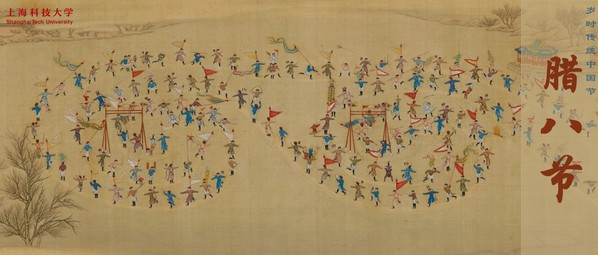 上海科技大学
ShanghaiTech University
岁时传统中国节
腊八节